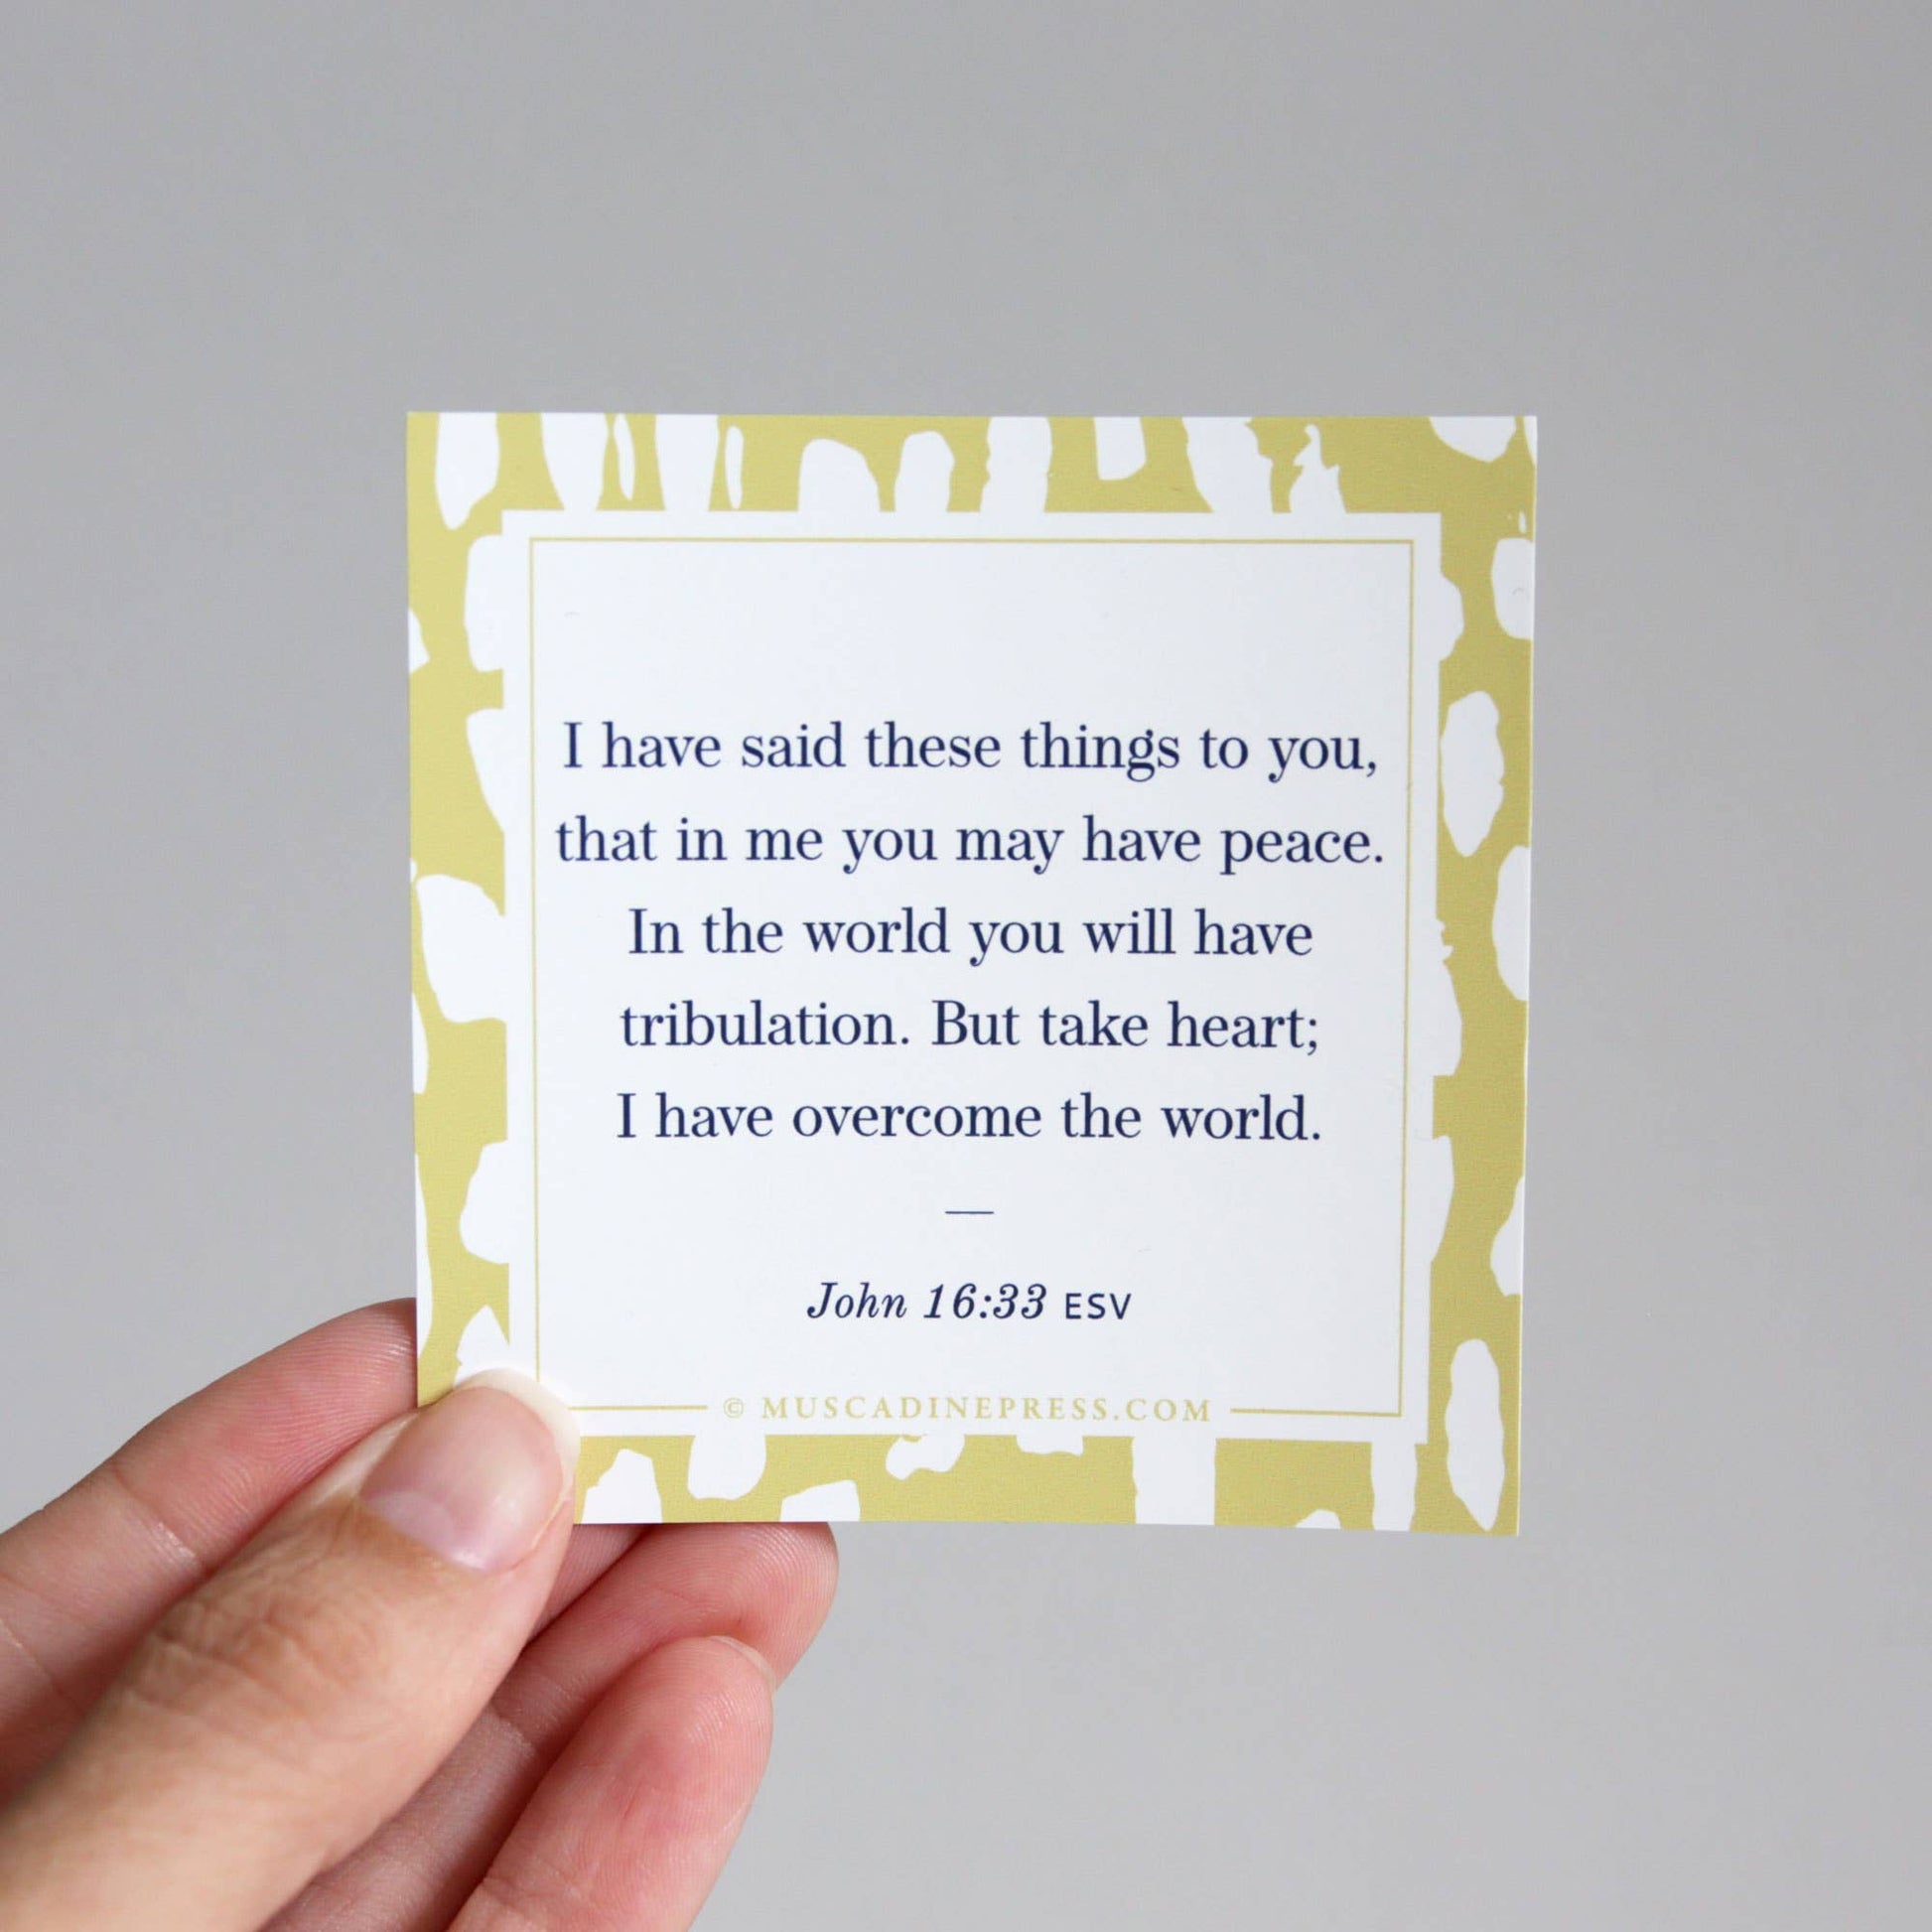 I have said these things to you,
that in me you may have peace.
In the world you will have
tribulation. But take heart;
I have overcome the world.
—
John 16:33 ESV
© MUSCADINEPRESS.COM